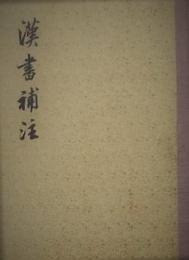 漢書補注